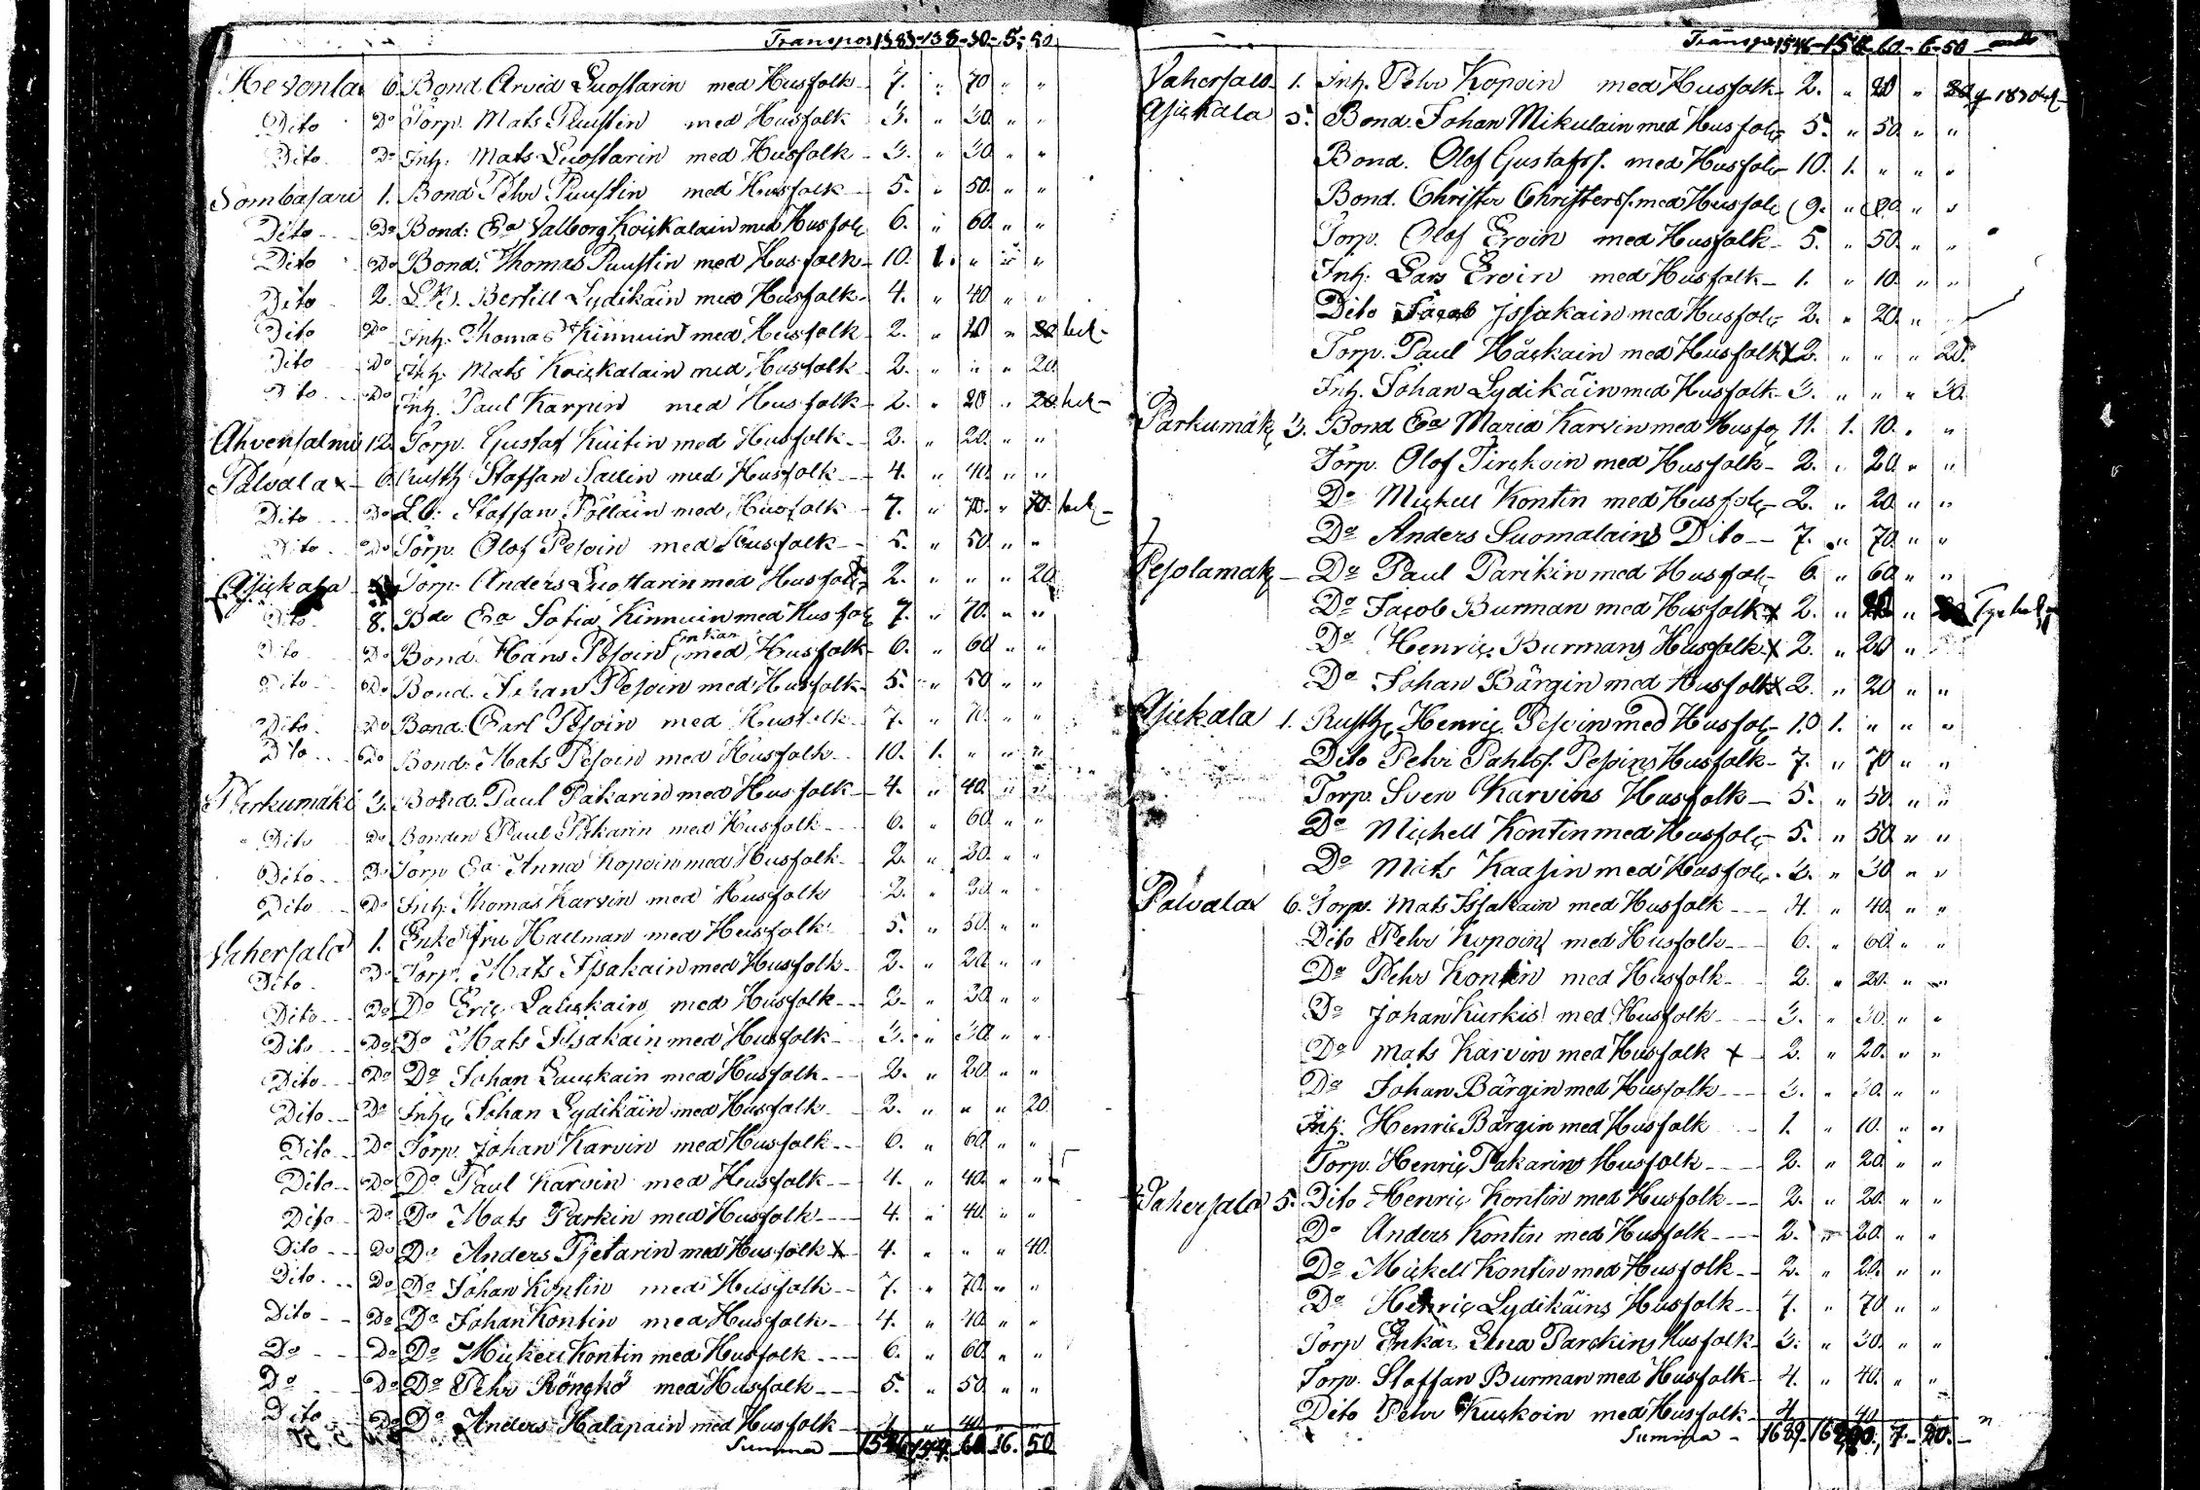 Transpor 1383-138-30-5-50
Hevonla 6. Bond. Arved Luostarin med Husfolk 7. " 70 " "
Dito Do Torp. Mats Puustin med Husfolk 3. " 30. " "
Dito Do Inh. Mats Luostarin med Husfolk 3. " 30 " "
Sombasari 1. Bond Pehr Puustin med Husfolk 5. " 50. " "
Dito Do Bond: Ea Valborg Koickalain med Husfolk 6. " 60. " "
Dito Do Bond. Thomas Puustin med Husfolk 10. 1. " " "
Dito 2. Bertill Lydikäin med Husfolk 4. " 40 " "
Dito Do Inh. Thomas Kinnuin med Husfolk 2. " 20 " 20
Dito Do Inh. Mats Koickalain med Husfolk 2. " " " 20
Dito Do Inh. Paul Karpin med Husfolk 2. " 20 " 20
Ahvensalmi 12. Torp. Gustaf Kuitin med Husfolk 2. " 20. " "
Palvala x 6. Rusth Staffan Sallin med Husfolk 4. " 40. " "
Dito Do Staffan Pöllain med Husfolk 7. " 70. " 70.
Dito Do Torp. Olof Pesoin med Husfolk 5. " 50 " "
Ajickala Torp. Anders Luostarin med Husfolk 2. " " " 20
Dito 8. Bde Ea Sofia Kinnuin med Husfolk 7. " 70. " "
Dito Do Bond. Hans Pesoin Enkan med Husfolk 6. " 60 " "
Dito Do Bond. Johan Pesoin med Husfolk 5. " 50 " "
Dito Do Bond. Carl Pesoin med Husfolk 7. " 70. " "
Dito Do Bond. Mats Pesoin med Husfolk 10. 1. " " "
Parkumäki 3. Bond. Paul Pakarin med Husfolk 4. " 40. " "
Dito Do Bonden Paul Pakarin med Husfolk 6. " 60. " "
Dito Do Torp Ea Anna Kopoin med Husfolk 2. " 20. " "
Dito Do Inh. Thomas Karvin med Husfolk 2. " 20. " "
Vahersalo 1. Enke fru Hallman med Husfolk 5. " 50. " "
Dito Do Torp. Mats Issakain med Husfolk 2. " 20 " "
Dito Do Do Eric med Husfolk 2. " 20 " "
Dito Do Do Mats Issakain med Husfolk 3. " 30 " "
Dito Do Do Johan Lauckain med Husfolk 2. " 20 " "
Dito Do Inh Johan Lydikäin med Husfolk 2. " " " 20.
Dito Do Torp. Johan Karvin med Husfolk 6. " 60. " "
Dito Do Do Paul Karvin med Husfolk 4. " 40. " "
Dito Do Do Mats Parkin med Husfolk 4. " 40. " "
Dito Do Do Anders Pjetarin med Husfolk x 4. " " " 40.
Dito Do Do Johan Kontin med Husfolk 7. " 70. " "
Dito Do Do Johan Kontin med Husfolk 4. " 40 " "
Do Do Do Mickell Kontin med Husfolk 6. " 60. " "
Do Do Do Pehr Rönckö med Husfolk 5. " 50 " "
Dito Do Do Anders Halapain med Husfolk 4 " 40.
Summa 60 50
Transpor 1546-154-60-6-50
Vahersalo 1. Inh. Pehr Kopoin med Husfolk 2. " 20 " 20
Ajickala 5. Bond. Johan Mikulain med Husfolk 5. " 50 " "
Bond. Olof Gustafss. med Husfolk 10. 1. " " "
Bond. Christer Christerss. med Husfolk 9. " 90 " "
Torp. Olof Eroin med Husfolk 5. " 50. " "
Inh. Lars Eroin med Husfolk 1. " 10. " "
Dito Jacob Issakain med Husfolk 2. " 20. "
Torp. Paul Häckain med Husfolk x 2. " " " 20.
Inh. Johan Lydikäin med Husfolk 3. " " " 30.
Parkumäki 3. Bond Ea Maria Karvin med Husfolk 11. 1. 10. " "
Torp. Olof Tirckoin med Husfolk 2. " 20. " "
Do Mickell Kontin med Husfolk 2. " 20 " "
Do Anders Suomalains Dito 7. " 70 " "
Pesolamäki Do Paul Parikin med Husfolk 6 " 60 " "
Do Jacob Burman med Husfolk x 2. " "
Do Henric Burmans Husfolk x 2. " 20 "
Do Johan Bärgin med Husfolk x 2. " 20 " "
Ajickala 1. Rusth Henric Pesoin med Husfolk 10 1. " " "
Dito Pehr Pahlss. Pesoins Husfolk 7. " 70 " "
Torp. Sven Karvins Husfolk 5. " 50. " "
Do Michell Kontin med Husfolk 5. " 50 " "
Do Mats Kaasin med Husfolk 3. " 30 " "
Palvala 6. Torp. Mats Issakain med Husfolk 4. " 40. " "
Dito Pehr Kopoin med Husfolk 6. " 60 " "
Do Pehr Kontin med Husfolk 2. " 20. " "
Do Johan Kurkis med Husfolk 3. " 30. " "
Do Mats Karvin med Husfolk x 2. " 20. " "
Do Johan Bärgin med Husfolk 3. " 30. " "
Inh. Henric Bärgin med Husfolk 1. " 10. " "
Torp. Henric Pakarins Husfolk 2. " 20 " "
Vahersalo 5. Dito Henric Kontin med Husfolk 2. " 20. " "
Do Anders Kontin med Husfolk 2. " 20. " "
Do Mickell Kontin med Husfolk 2. " 20. " "
Do Henric Lydikäins Husfolk 7. " 70 " "
Torp Enkan Elna Parckins Husfolk 3. " 30. " "
Torp. Staffan Burman med Husfolk 4. " 40. " "
Dito Pehr Kuckoin med Husfolk 4 40
Summa 1689